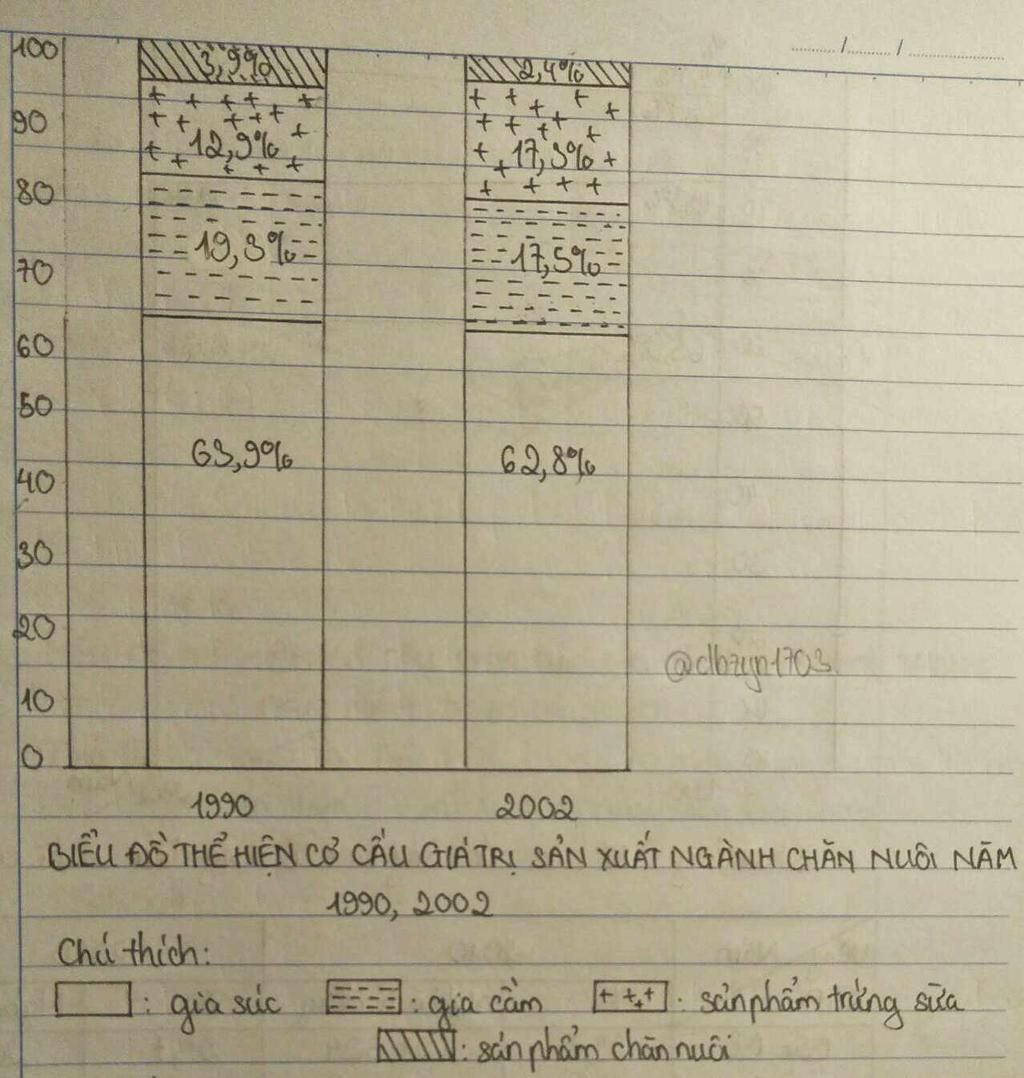 100
90
80
70
60
50
40
30
20
10
0
3,9%
12,9%
19,3%
63,9%
2,4%
17,3%
17,5%
62,8%
@clbzyn1703
1990 2002
BIỂU ĐỒ THỂ HIỆN CƠ CẤU GIÁ TRỊ SẢN XUẤT NGÀNH CHĂN NUÔI NĂM
1990, 2002
Chú thích:
: gia súc : gia cầm : sản phẩm trứng sữa
: sản phẩm chăn nuôi